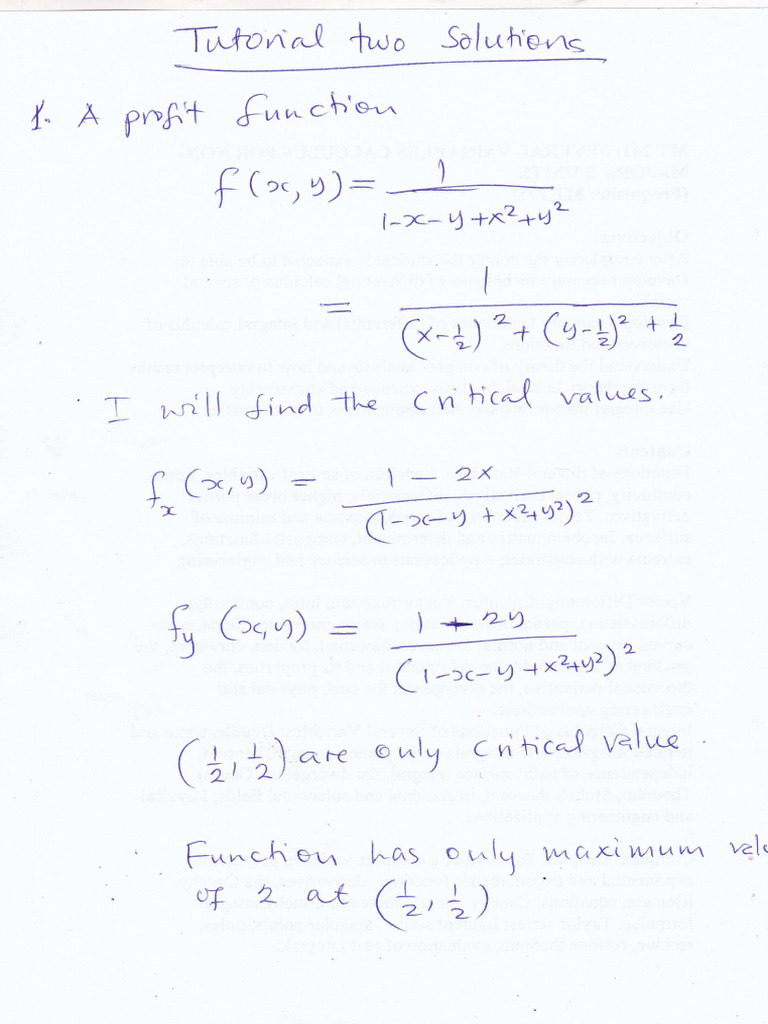 Tutorial two Solutions
1. A profit function
f(x, y) = 1 / (1-x-y+x²+y²)
= 1 / ((x-1/2)² + (y-1/2)² + 1/2)
I will find the critical values.
fx (x, y) = (1 - 2x) / (1-x-y+x²+y²)²
fy (x, y) = (1 - 2y) / (1-x-y+x²+y²)²
(1/2, 1/2) are only critical value.
Function has only maximum valu
of 2 at (1/2, 1/2)